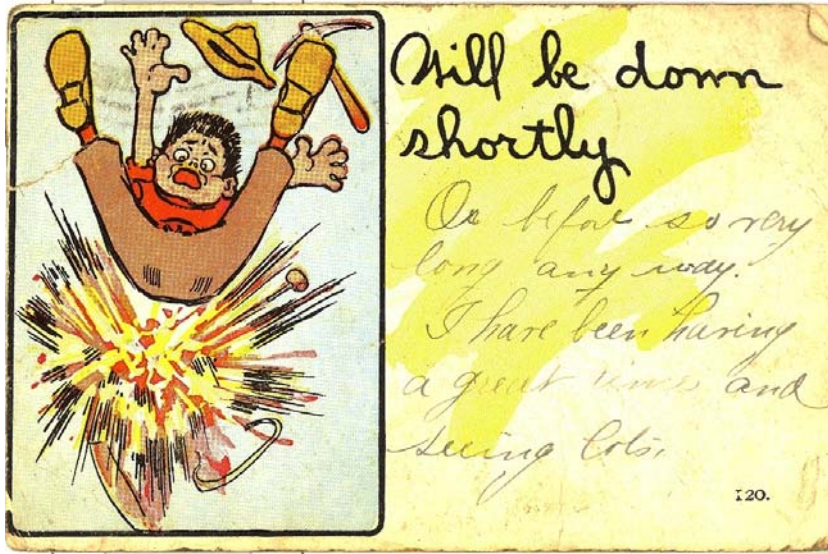 Will be down
shortly
Or before so very
long any way.
I have been having
a great time and
seeing lots.
120.